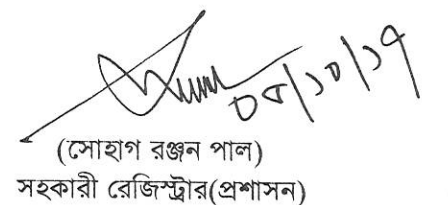 ০৮/১০/১৭
(সোহাগ রঞ্জন পাল)
সহকারী রেজিস্ট্রার(প্রশাসন)